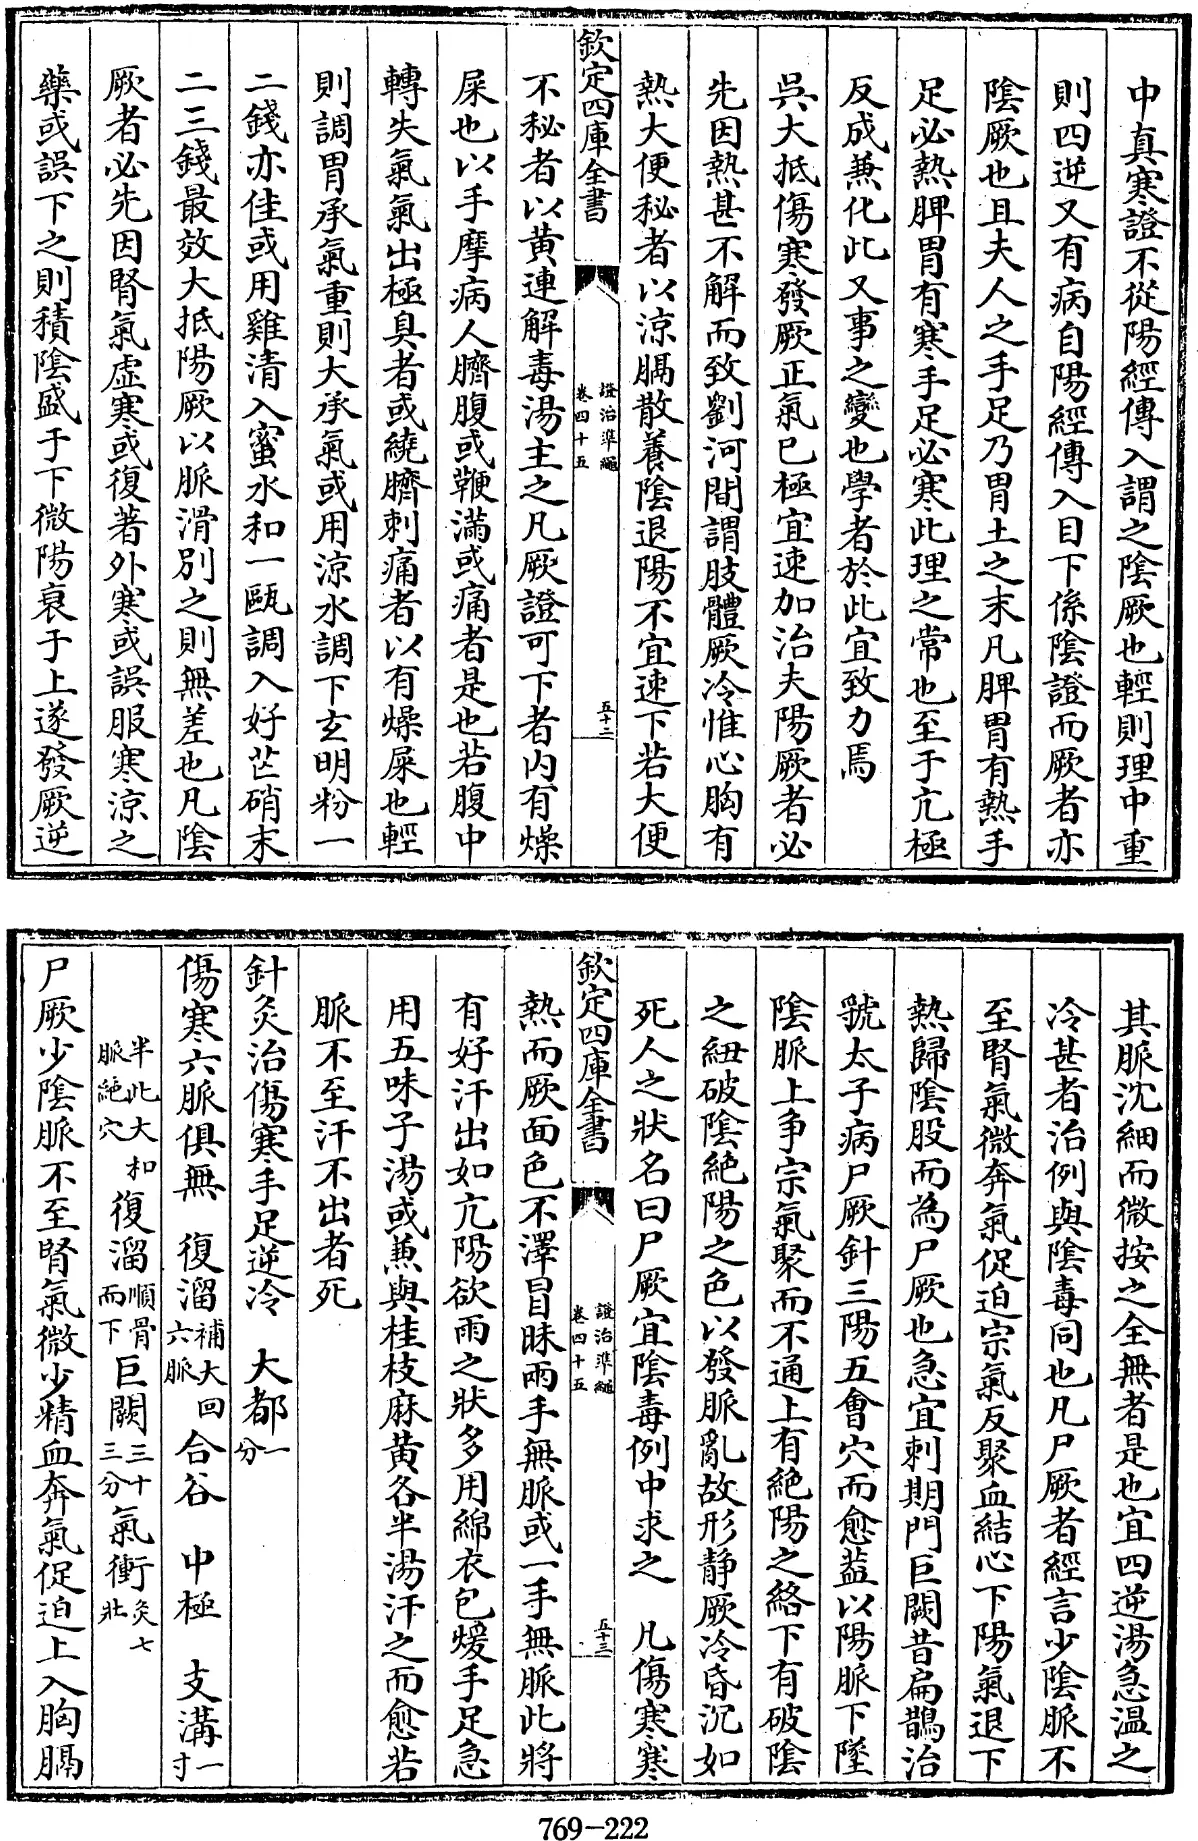 中真寒證不從陽經傳入謂之陰厥也輕則理中重
則四逆又有病自陽經傳入目下係陰證而厥者亦
陰厥也且夫人之手足乃胃土之末凡脾胃有熱手
足必熱脾胃有寒手足必寒此理之常也至于亢極
反成兼化此又事之變也學者於此宜致力焉
吳大抵傷寒發厥正氣已極宜速加治夫陽厥者必
先因熱甚不解而致劉河間謂肢體厥冷惟心胸有
熱大便秘者以涼膈散養陰退陽不宜速下若大便
欽定四庫全書
證治準繩
卷四十五
五十二
不秘者以黃連解毒湯主之凡厥證可下者內有燥
屎也以手摩病人臍腹或鞕滿或痛者是也若腹中
轉失氣氣出極臭者或繞臍刺痛者以有燥屎也輕
則調胃承氣重則大承氣或用涼水調下玄明粉一
二錢亦佳或用雞清入蜜水和一甌調入好芒硝末
二三錢最效大抵陽厥以脈滑別之則無差也凡陰
厥者必先因腎氣虛寒或復著外寒或誤服寒涼之
藥或誤下之則積陰盛于下微陽衰于上遂發厥逆
其脈沉細而微按之全無者是也宜四逆湯急溫之
冷甚者治例與陰毒同也凡尸厥者經言少陰脈不
至腎氣微奔氣促迫宗氣反聚血結心下陽氣退下
熱歸陰股而為尸厥也急宜刺期門巨闕昔扁鵲治
虢太子病尸厥針三陽五會穴而愈蓋以陽脈下墜
陰脈上爭宗氣聚而不通上有絕陽之絡下有破陰
之紐破陰絕陽之色以發脈亂故形靜厥冷昏沉如
死人之狀名曰尸厥宜陰毒例中求之　凡傷寒寒
欽定四庫全書
證治準繩
卷四十五
五十三
熱而厥面色不澤冒昧兩手無脈或一手無脈此將
有好汗出如亢陽欲雨之狀多用綿衣包煖手足急
用五味子湯或兼與桂枝麻黃各半湯汗之而愈若
脈不至汗不出者死
針灸治傷寒手足逆冷　大都一分
傷寒六脈俱無　復溜補大回六脈　合谷　中極　支溝一寸
半此大和脈絕穴　復溜順骨而下　巨闕三十三分　氣衝灸七壯
尸厥少陰脈不至腎氣微少精血奔氣促迫上入胸膈
769-222